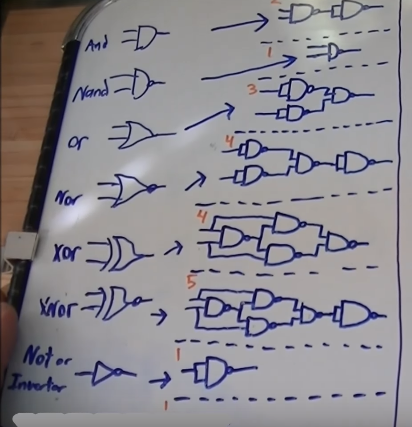 And 2
Nand 1
or 3
Nor 4
Xor 4
XNor 5
Not or 1
Invertor
1